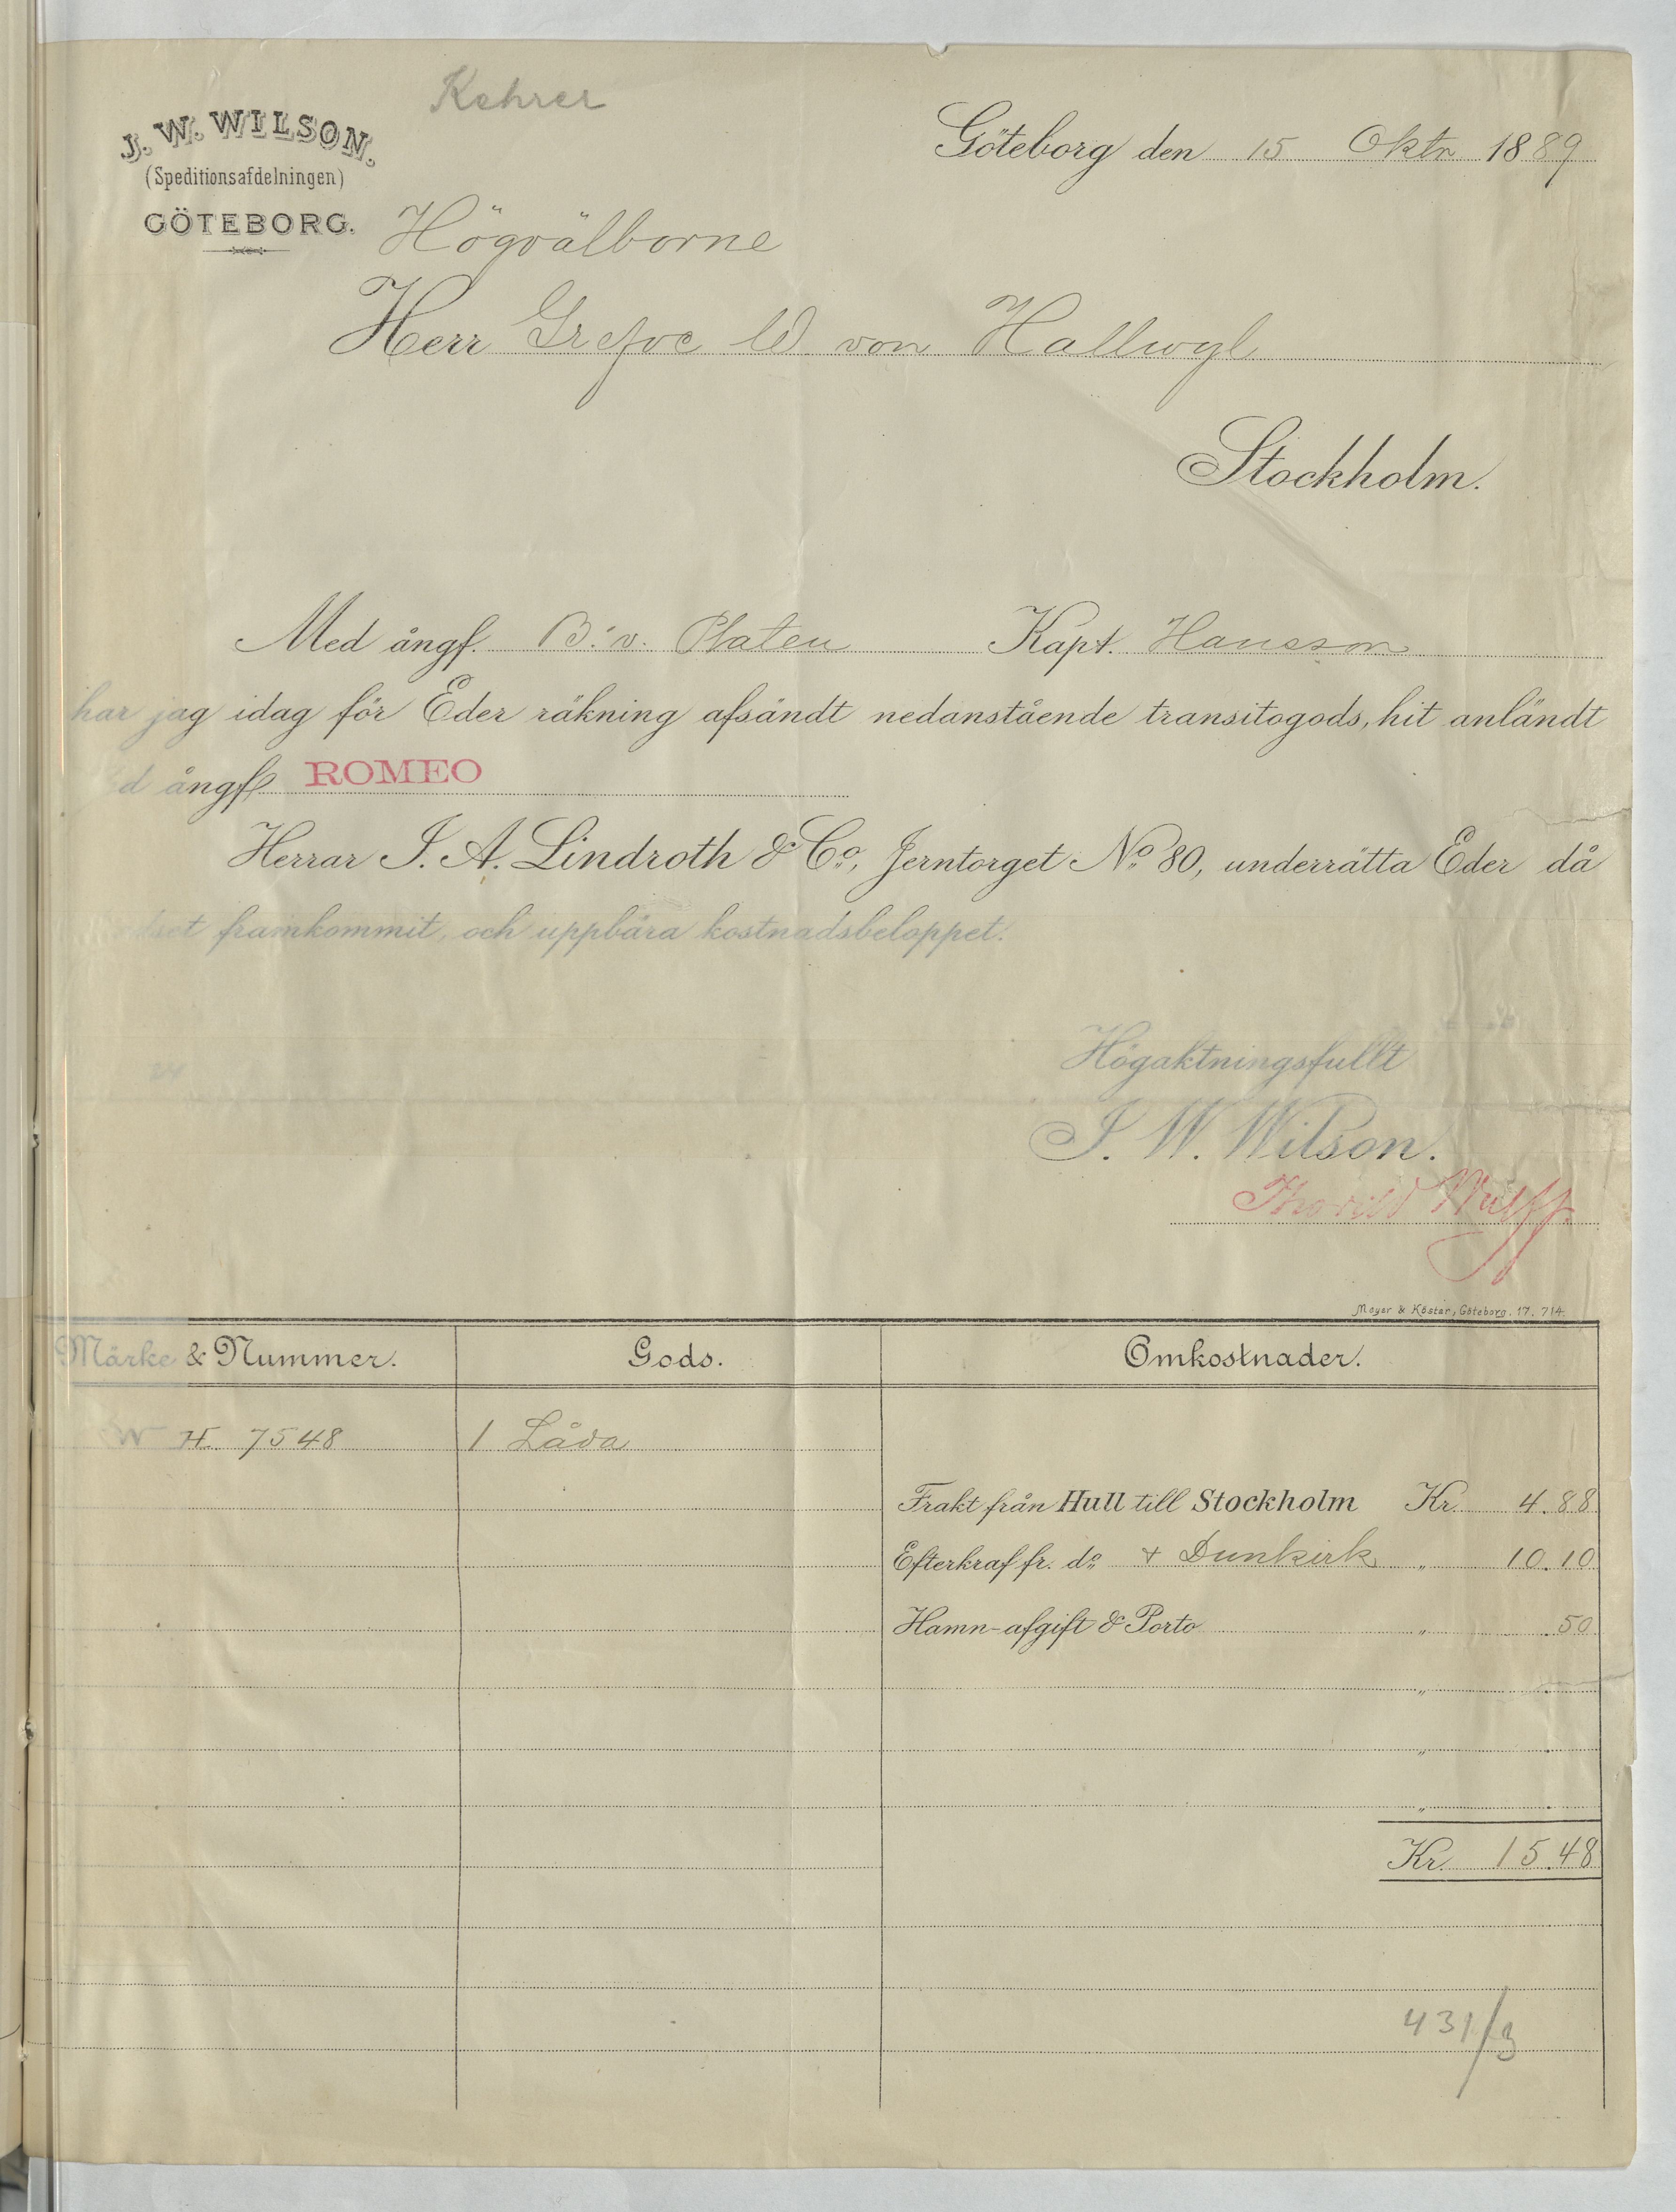 Kehrer
J. W. WILSON.
(Speditionsafdelningen)
GÖTEBORG.
Göteborg den 15 Oktr 1889
Högvälborne
Herr Grefve W von Hallwyl
Stockholm.
Med ångf. B. v. Platen Kapt. Hansson
har jag idag för Eder räkning afsändt nedanstående transitogods, hit anländt
d ångf. ROMEO
Herrar J. A. Lindroth & Co., Jerntorget No. 80, underrätta Eder då
dset framkommit, och uppbära kostnadsbeloppet.
Högaktningsfullt
J. W. Wilson.
Thorild Wulff
Meyer & Köster, Göteborg. 17. 714.
Märke & Nummer. Gods. Omkostnader.
W H 7548 1 Låda
Frakt från Hull till Stockholm Kr. 4.88
Efterkraf fr. do + Dunkirk " 10.10
Hamn-afgift & Porto " .50
"
"
"
Kr. 15.48
431/3